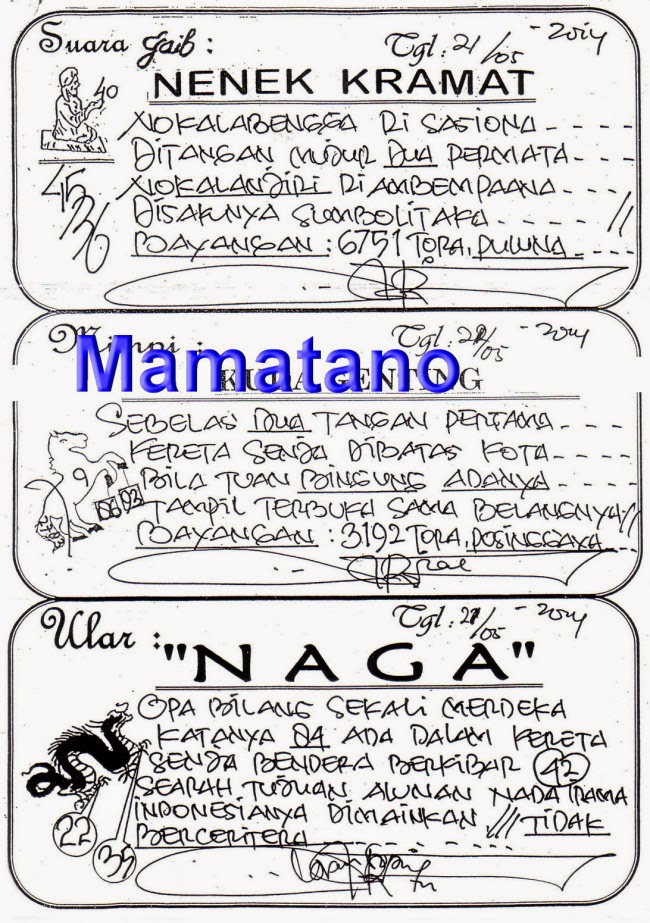 Suara Gaib :
Tgl: 21/05 - 2014
NENEK KRAMAT
40
NOKALABENGGA RI SASIONA - - - -
DITANGAN MUJUR DUA PERMATA - - -
NOKALANDIRI RI AMBEMPAANA - - -
DISAKUNYA SUMBOLITAKA - - - //
BAYANGAN : 6751 TORA, PULUNA - - - -
45
36
Mimpi :
Tgl: 21/05 - 2014
Mamatano
KUDA GENTING
SEBELAS DUA TANGAN PERTAMA - - - -
KERETA SENJA DIBATAS KOTA - - - -
BILA TUAN BINGUNG ADANYA - - - -
TAMPIL TERBUKA SAMA BELANGNYA //
BAYANGAN : 3192 TORA, POSINGGAYA - - -
9
06 02
Ular :
Tgl: 21/05 - 2014
"NAGA"
OPA BILANG SEKALI MERDEKA
KATANYA 04 ADA DALAM KERETA
SENJA BENDERA BERKIBAR 42
SEARAH TUJUAN ALUNAN NADA IRAMA
INDONESIANYA DIMAINKAN /// TIDAK
BERCERITERA - - - -
22
35